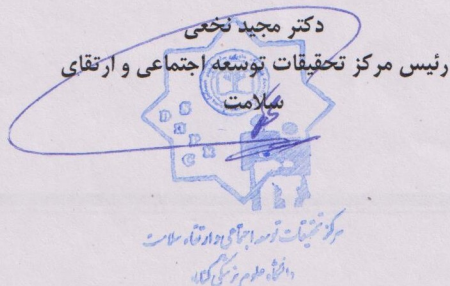 دکتر مجید نخعی
رئیس مرکز تحقیقات توسعه اجتماعی و ارتقای
سلامت
S D
P R
C
مرکز تحقیقات توسعه اجتماعی و ارتقاء سلامت
دانشگاه علوم پزشکی گناباد